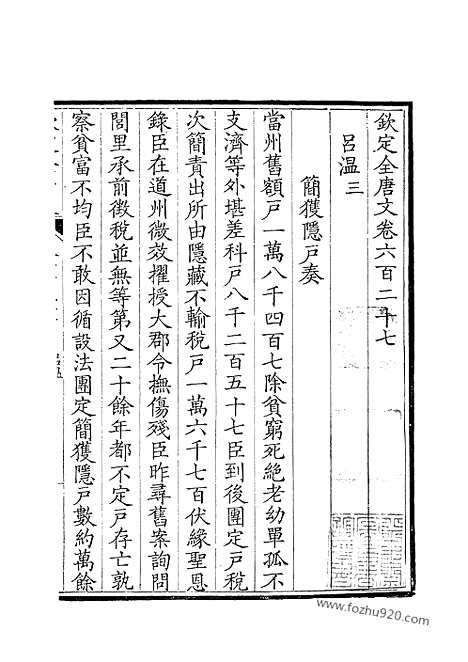 欽定全唐文卷六百二十七
呂溫三
簡獲隱戶奏
當州舊額戶一萬八千四百七除貧窮死絕老幼單孤不
支濟等外堪差科戶八千二百五十七臣到後團定戶稅
次簡責出所由隱藏不輸稅戶一萬六千七百伏緣聖恩
錄臣在道州微效擢授大郡令撫傷殘臣昨尋舊案詢問
閭里承前徵稅並無等第又二十餘年都不定戶存亡孰
察貧富不均臣不敢因循設法團定簡獲隱戶數約萬餘
www.fozhu920.com